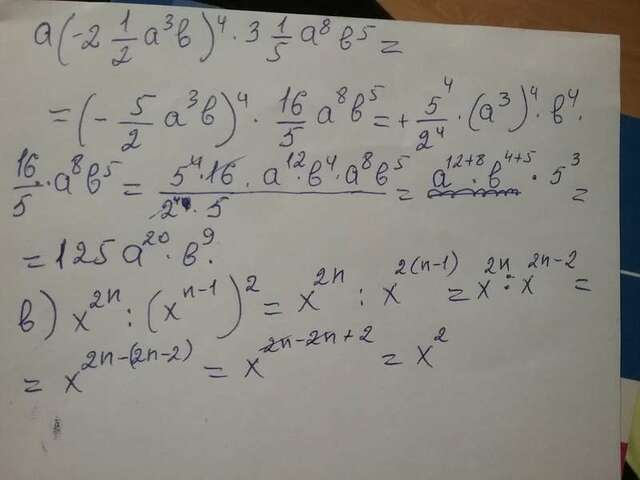 а(-2 1/2 a³b)⁴ · 3 1/5 a⁸b⁵ =
= (- 5/2 a³b)⁴ · 16/5 a⁸b⁵ = + 5⁴/2⁴ · (a³)⁴ · b⁴ ·
16/5 · a⁸b⁵ = 5⁴ · 16 · a¹² · b⁴ · a⁸b⁵ / 2⁴ · 5 = a¹²⁺⁸ · b⁴⁺⁵ · 5³ =
= 125 a²⁰ · b⁹.
в) x²ⁿ : (xⁿ⁻¹)² = x²ⁿ : x²⁽ⁿ⁻¹⁾ = x²ⁿ : x²ⁿ⁻² =
= x²ⁿ⁻⁽²ⁿ⁻²⁾ = x²ⁿ⁻²ⁿ⁺² = x²